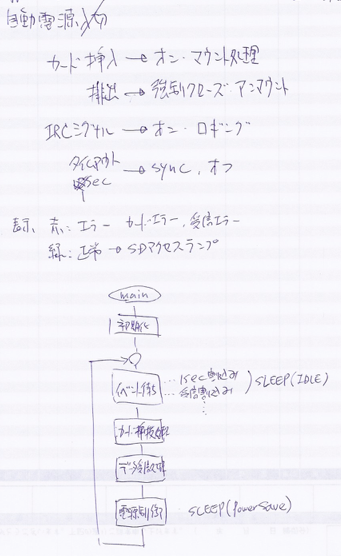 自動電源入切
カード挿入 → オン・マウント処理
排出 → 強制クローズ・アンマウント
IRCシグナル → オン・ロギング
タイムアウト sec → sync, オフ
表示 赤: エラー カードエラー, 受信エラー
緑: 正常 → SDアクセスランプ
main
初期化
イベント待ち … 1sec割込み … 受信割込み ) SLEEP(IDLE)
カード挿抜処理
データ受信処理
電源制御 SLEEP(PowerSave)